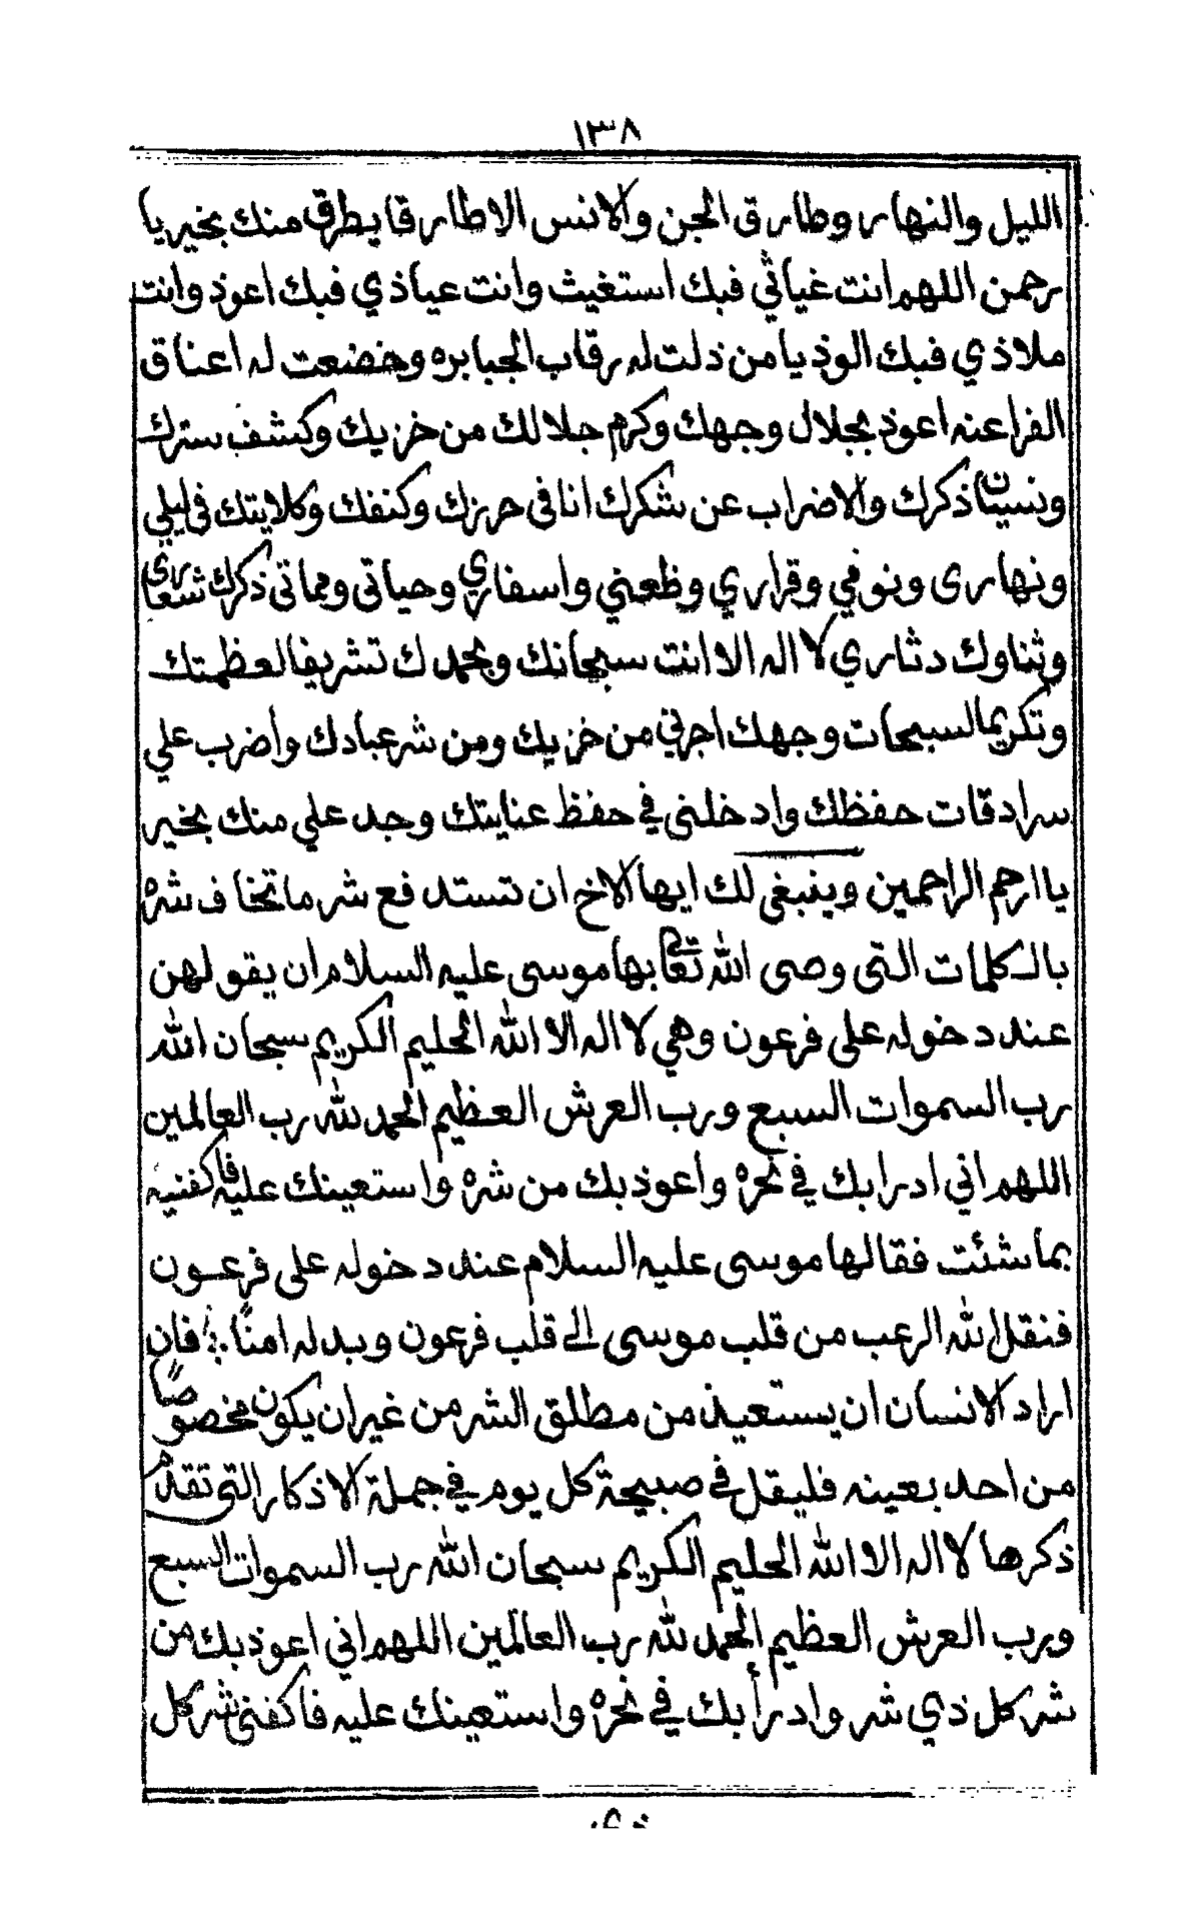 ١٣٨
الليل والنهار وطارق الجن والانس الا طارقا يطرق منك بخير يا
رحمن اللهم انت غياثي فبك استغيث وانت عياذي فبك اعوذ وانت
ملاذي فبك الوذ يا من ذلت له رقاب الجبابره وخضعت له اعناق
الفراعنه اعوذ بجلال وجهك وكرم جلالك من خزيك وكشف سترك
ونسيان ذكرك والاضراب عن شكرك انا في حرزك وكنفك وكلايتك في ليلي
ونهارى ونومي وقراري وظعني واسفاري وحياتى ومماتى ذكرك شعارى
وثناوك دثاري لا اله الا انت سبحانك وبحمدك تشريفا لعظمتك
وتكريما لسبحات وجهك اجرني من خزيك ومن شر عبادك وأضرب علي
سرادقات حفظك وادخلنى في حفظ عنايتك وجد علي منك بخير
يا ارحم الراحمين وينبغي لك ايها الاخ ان تستدفع شر ما تخاف شره
بالكلمات التى وصى الله تعالى بها موسى عليه السلام ان يقولهن
عند دخوله على فرعون وهي لا اله الا الله الحليم الكريم سبحان الله
رب السموات السبع ورب العرش العظيم الحمد لله رب العالمين
اللهم اني ادرا بك في نحره وأعوذ بك من شره واستعينك عليه فاكفنيه
بما شئت فقالها موسى عليه السلام عند دخوله على فرعون
فنقل الله الرعب من قلب موسى الى قلب فرعون وبدله امنًا ∴ فان
اراد الانسان ان يستعيذ من مطلق الشر من غير ان يكون مخصوصًا
من احد بعينه فليقل في صبيحة كل يوم في جملة الاذكار التى تقدم
ذكرها لا اله الا الله الحليم الكريم سبحان الله رب السموات السبع
ورب العرش العظيم الحمد لله رب العالمين اللهم اني اعوذ بك من
شر كل ذي شر وادرأ بك في نحره واستعينك عليه فاكفنى شر كل